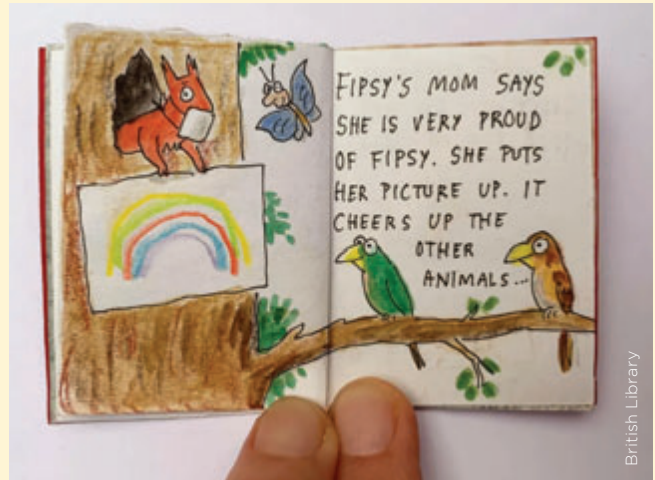 FIPSY'S MOM SAYS
SHE IS VERY PROUD
OF FIPSY. SHE PUTS
HER PICTURE UP. IT
CHEERS UP THE
OTHER
ANIMALS...
British Library